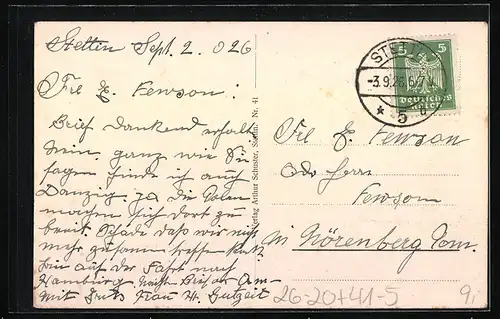 Stettin Sept. 2. 026
Frl E. Fewson:
Brief dankend erhalt.
Nein, ganz wie Sie
sagen finde ich auch
Danzig. ja Die Polen
machen sich dort zu
breit. Schade daß wir uns
mehr zusammen treffen
bin auf der Fahrt nach
Hamburg
mit Gruß Frau W. Gutzeit
Verlag Arthur Schuster, Stettin. Nr. 41
STETTIN
-3.9.26.6-7 V
* 5 u
5
Deutsches Reich
Frl. E. Fewson
Adr Herrn
Fewson
in Nörenberg Pom.
26-20+41-5
9,-